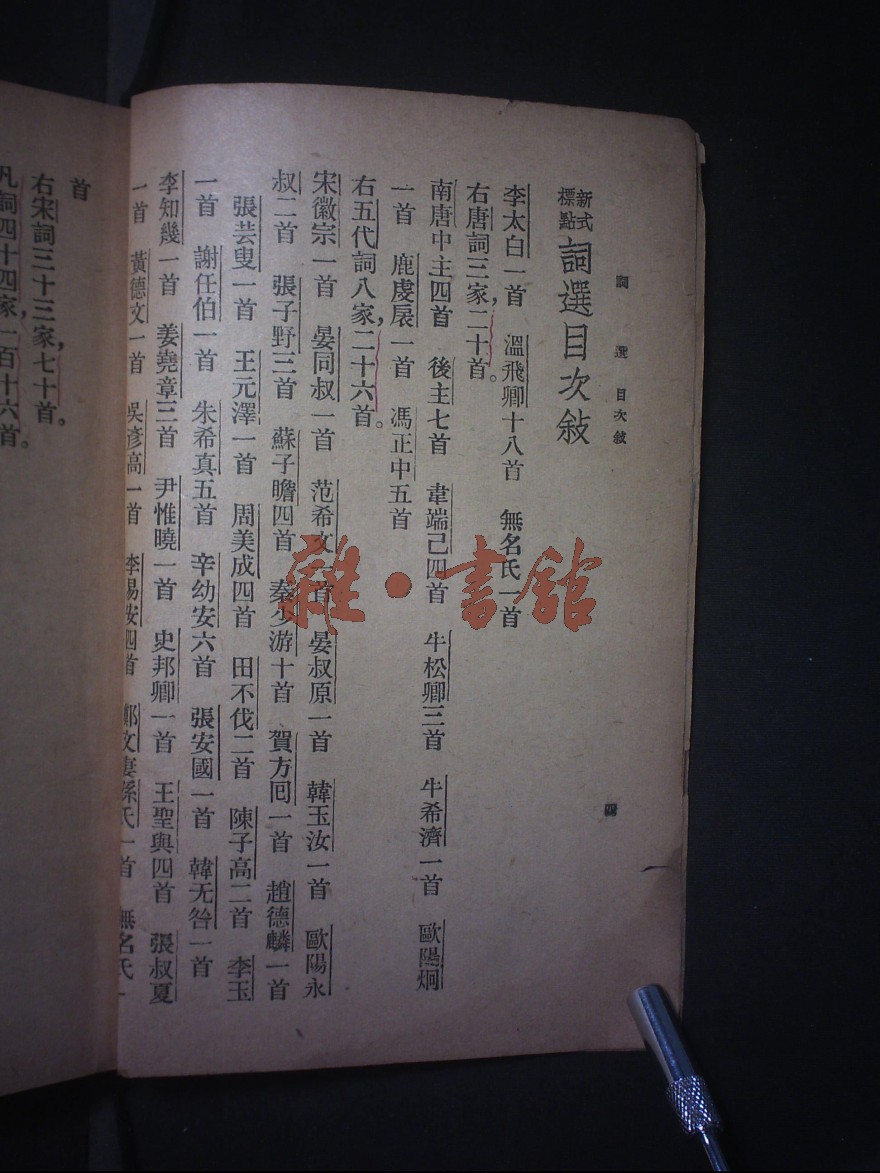 詞選目次敍
四
新式標點 詞選目次敍
李太白一首 溫飛卿十八首 無名氏一首
右唐詞三家，二十首。
南唐中主四首 後主七首 韋端己四首 牛松卿三首 牛希濟一首 歐陽炯
一首 鹿虔扆一首 馮正中五首
右五代詞八家，二十六首。
宋徽宗一首 晏同叔一首 范希文一首 晏叔原一首 韓玉汝一首 歐陽永
叔二首 張子野三首 蘇子瞻四首 秦少游十首 賀方回一首 趙德麟一首
張芸叟一首 王元澤一首 周美成四首 田不伐二首 陳子高二首 李玉
一首 謝任伯一首 朱希真五首 辛幼安六首 張安國一首 韓无咎一首
李知幾一首 姜堯章三首 尹惟曉一首 史邦卿一首 王聖與四首 張叔夏
一首 黃德文一首 吳彥高一首 李易安四首 鄭文妻孫氏一首 無名氏一
首
右宋詞三十三家，七十首。
凡詞四十四家，一百十六首。
雜·書館